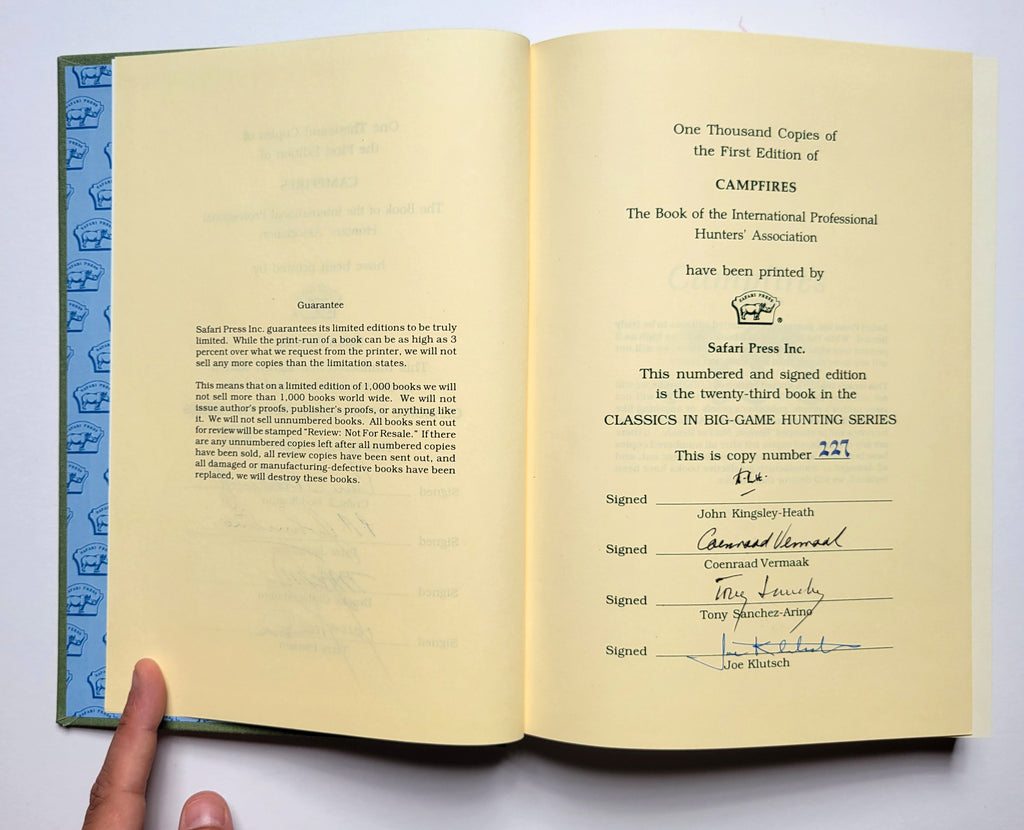 Guarantee
Safari Press Inc. guarantees its limited editions to be truly
limited. While the print-run of a book can be as high as 3
percent over what we request from the printer, we will not
sell any more copies than the limitation states.
This means that on a limited edition of 1,000 books we will
not sell more than 1,000 books world wide. We will not
issue author's proofs, publisher's proofs, or anything like
it. We will not sell unnumbered books. All books sent out
for review will be stamped "Review: Not For Resale." If there
are any unnumbered copies left after all numbered copies
have been sold, all review copies have been sent out, and
all damaged or manufacturing-defective books have been
replaced, we will destroy these books.
One Thousand Copies of
the First Edition of
CAMPFIRES
The Book of the International Professional
Hunters' Association
have been printed by
SAFARI PRESS
®
Safari Press Inc.
This numbered and signed edition
is the twenty-third book in the
CLASSICS IN BIG-GAME HUNTING SERIES
This is copy number 227
Signed
John Kingsley-Heath
Signed Coenraad Vermaak
Coenraad Vermaak
Signed Tony Sanchez
Tony Sanchez-Arino
Signed Joe Klutsch
Joe Klutsch